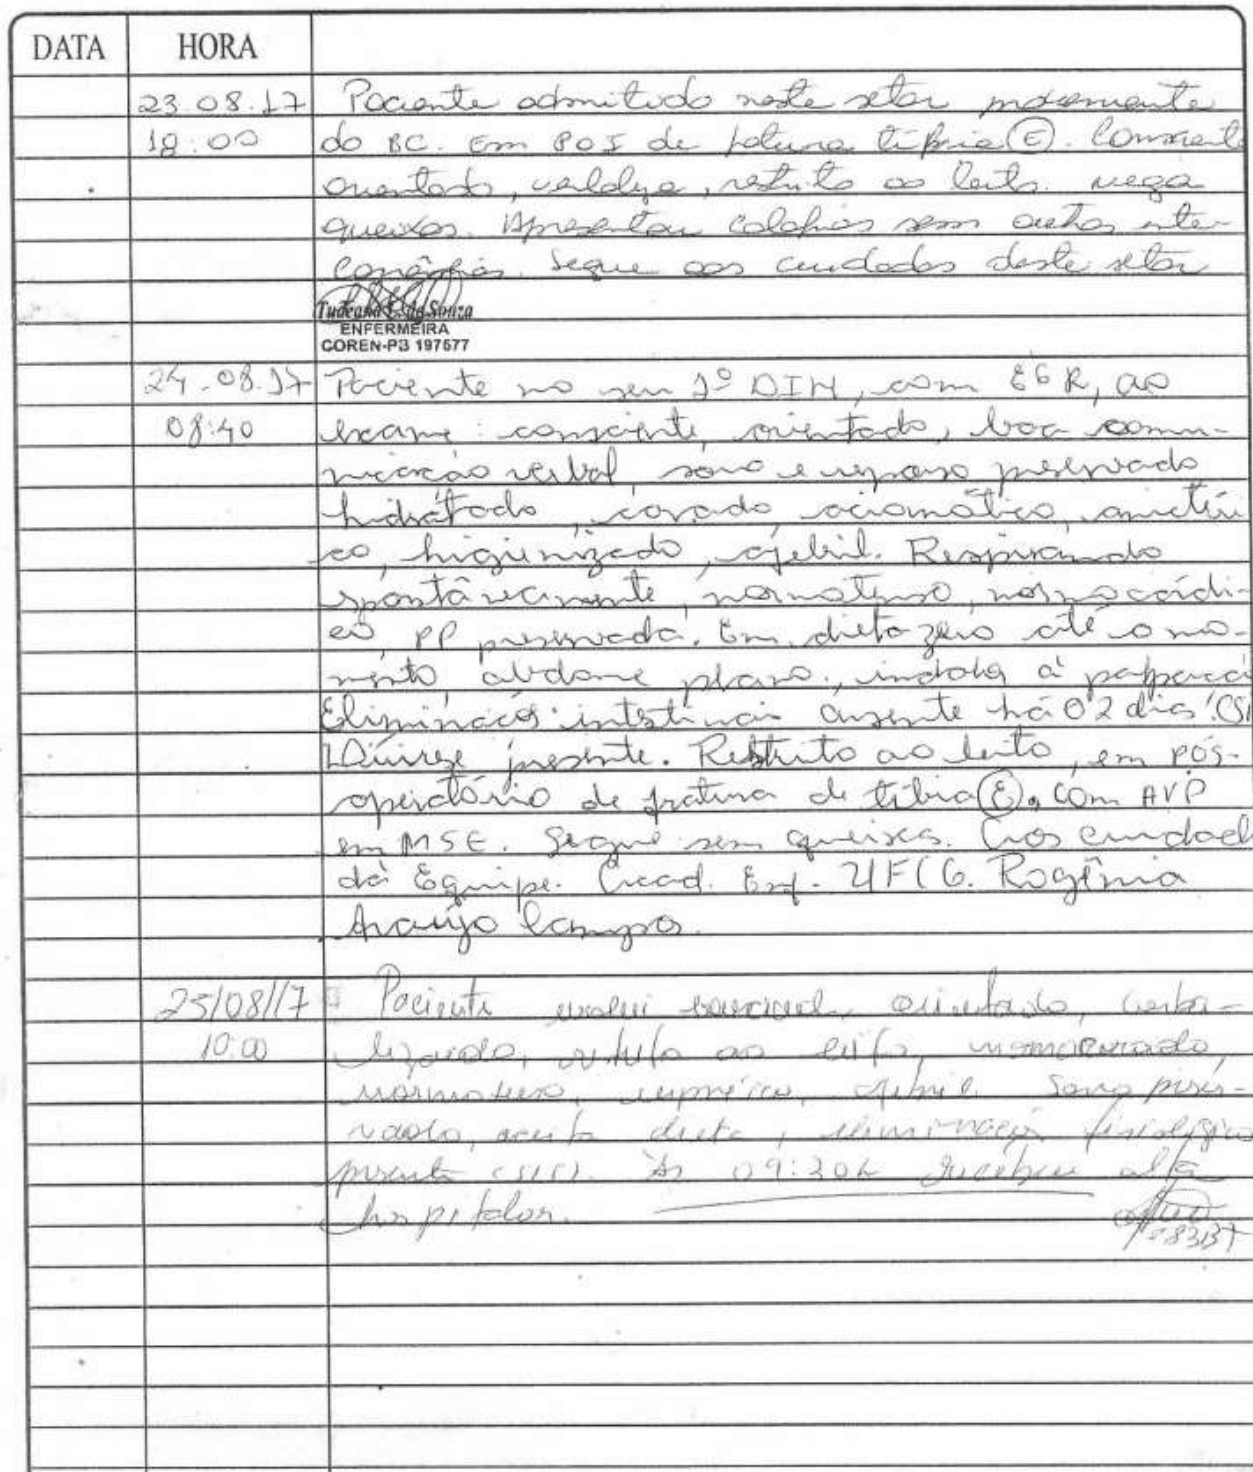 DATA HORA
23.08.17 Paciente admitido neste setor
18:00 do BC. Em POI de fratura tíbia (E). Consciente
orientado, restrito ao leito. nega
queixas. Apresentou sem
Segue aos cuidados deste setor
ENFERMEIRA
COREN-PB 197677
24.08.17 Paciente no seu 1º DIH, com EGR, ao
08:40 exame: consciente, orientado, boa comu-
nicação verbal, sono e repouso preservado
hidratado, corado, acianótico, anictéri
co, higienizado, afebril. Respirando
espontâneamente, normotenso, normocárdi-
co, PP preservada. Em dieta zero até o mo-
mento abdome plano, indolor à palpação
Eliminações intestinais ausente há 02 dias
Diurese presente. Restrito ao leito, em pós-
operatório de fratura de tíbia (E), com AVP
em MSE. Segue sem queixas. Aos cuidad
da Equipe. Acad. Enf. UFCG. Rogênia
Araújo Campos.
25/08/17 Paciente evolui consciente, orientado, verba-
10:00 lizando, restrito ao leito, normocorado,
normotenso, eupneico, afebril. Sono preser-
vado, aceita dieta, eliminações fisiológica
presente (SIC). Às 09:30h recebeu alta
hospitalar.